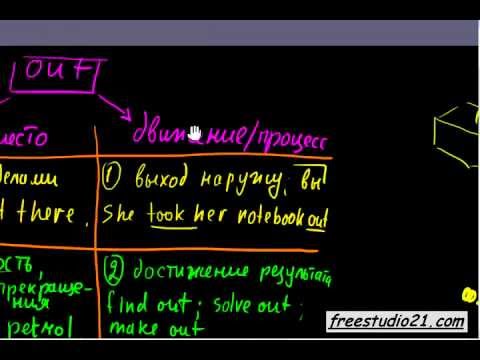 out
место
движение/процесс
делами
① выход наружу; вы
t there.
She took her notebook out
ость,
② достижение результата
прекраще-
ния
find out; solve out;
petrol
make out
freestudio21.com